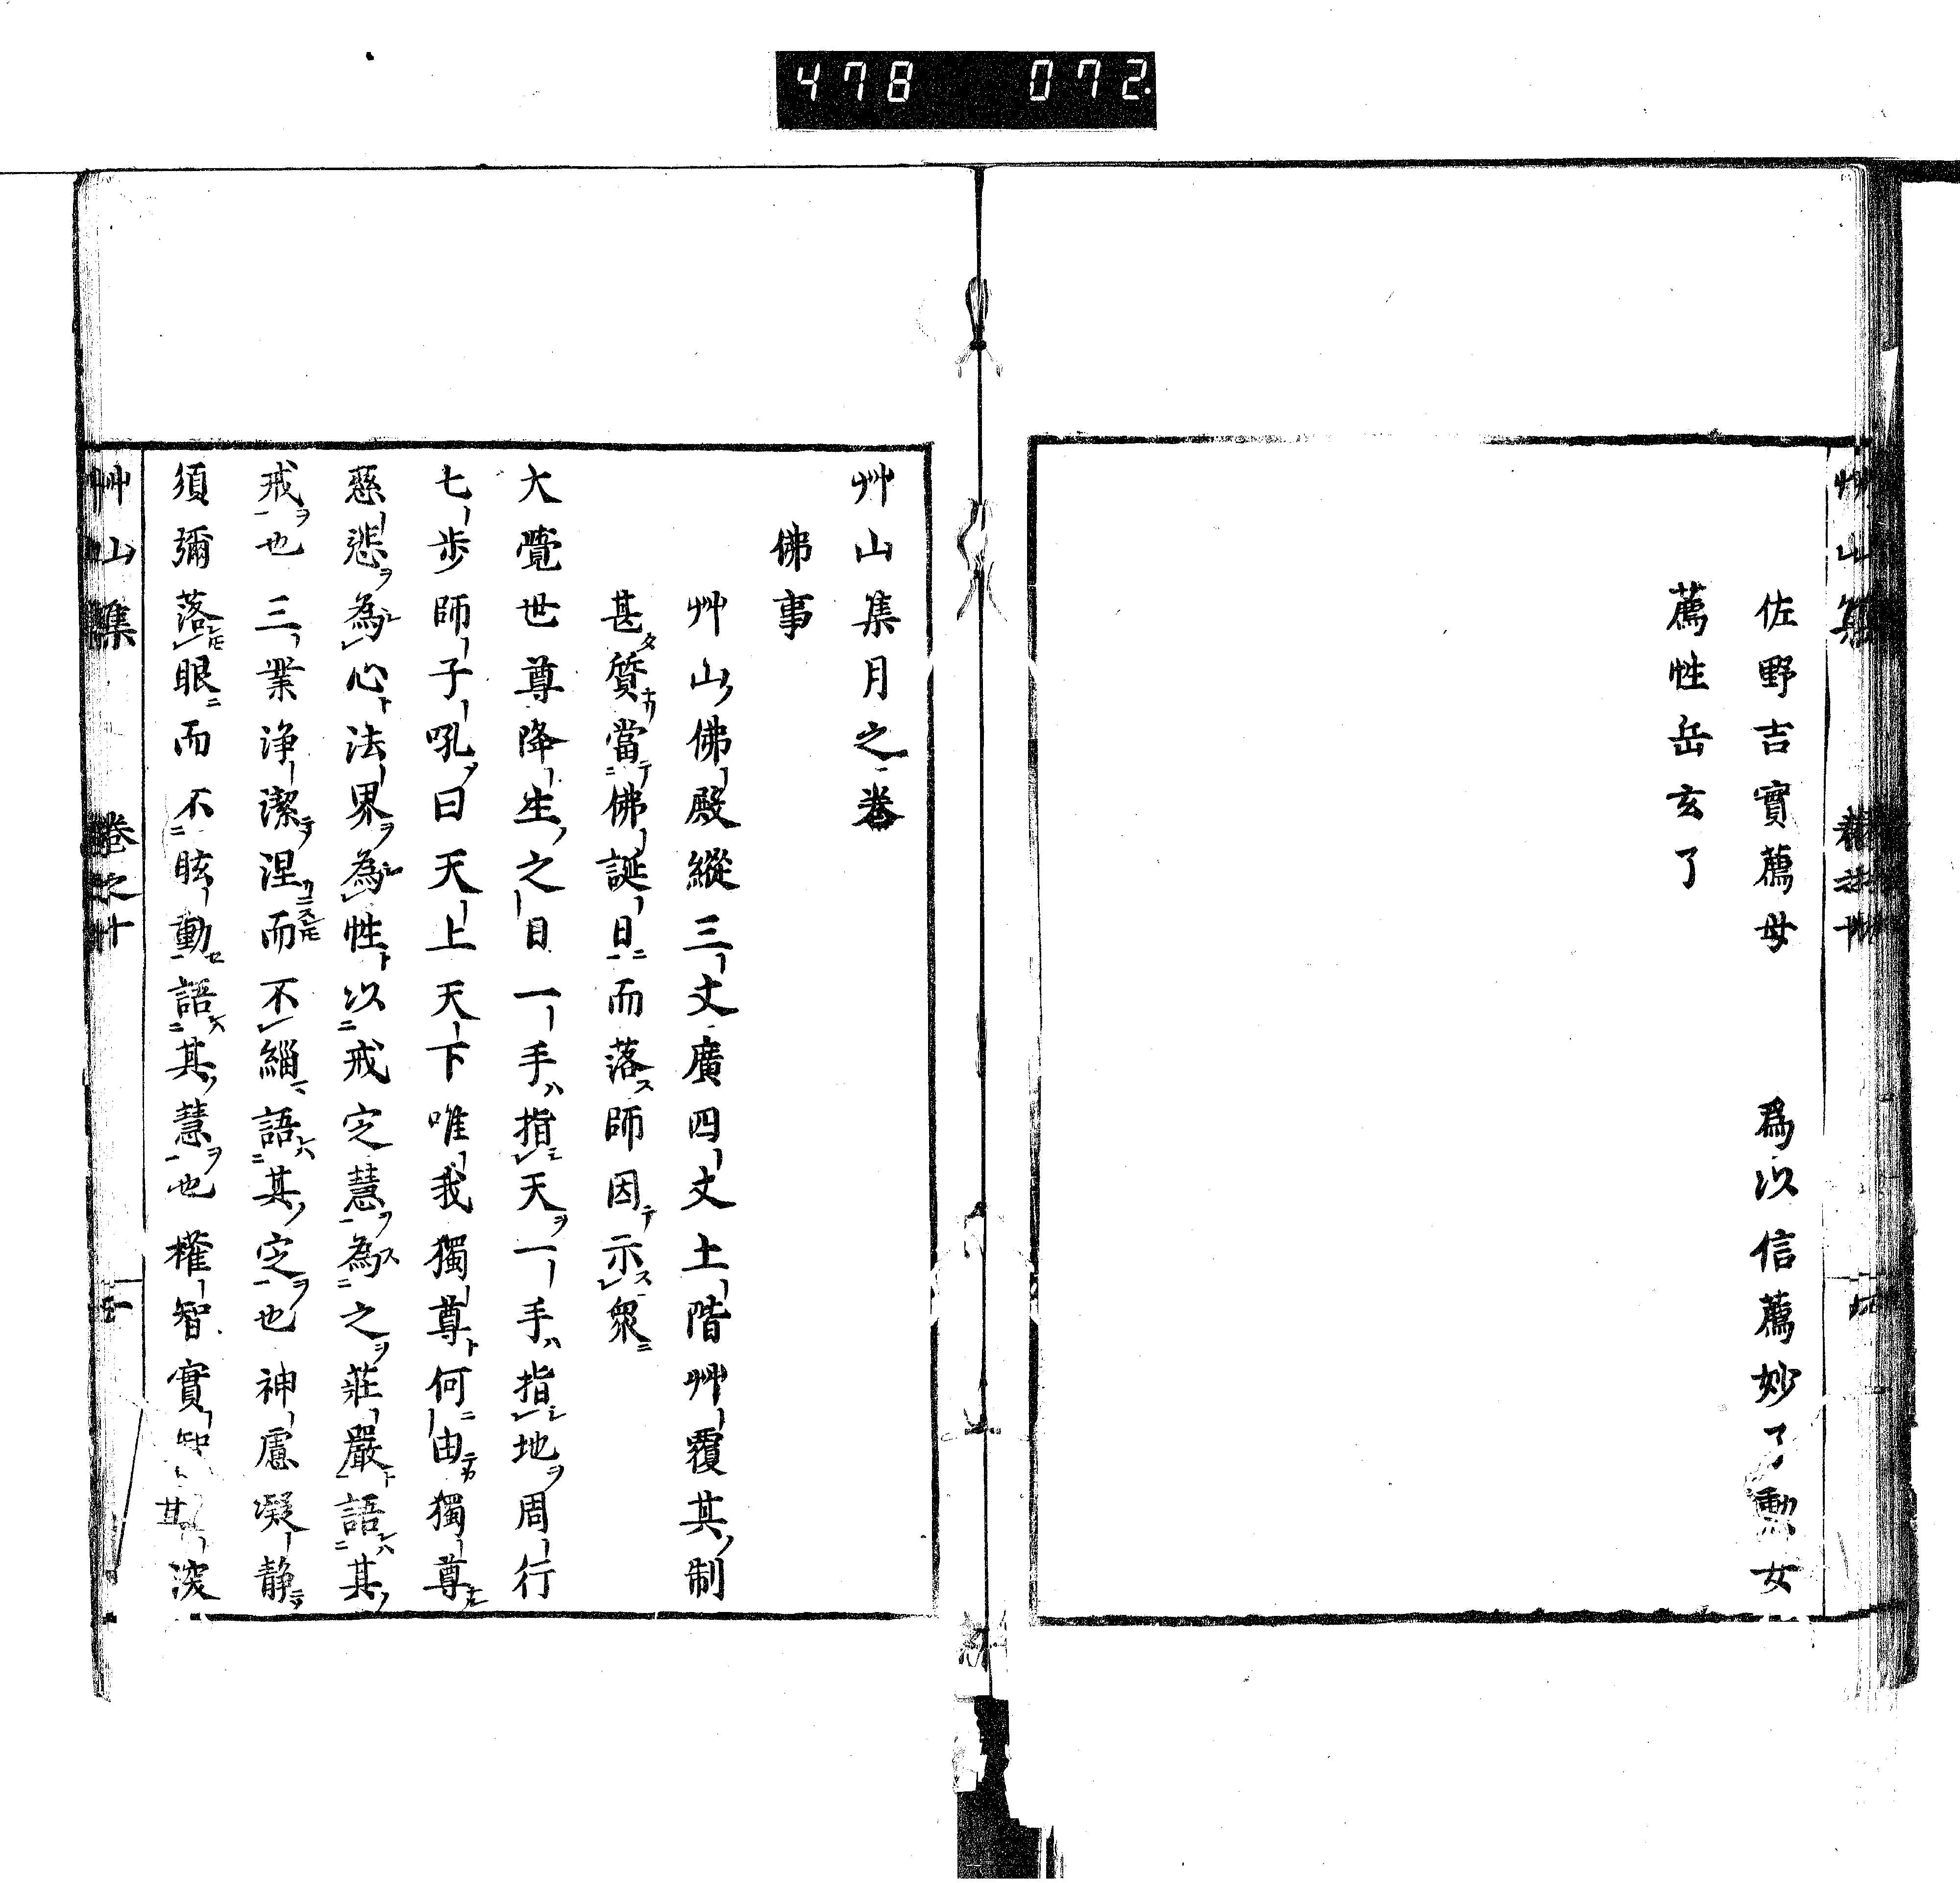 478 072.
艸山集
佐野吉實薦母 爲以信薦妙了勲女
薦性岳玄了
艸山集月之卷
佛事
艸山佛殿縱三丈廣四丈土階艸覆其制
甚質當佛誕日而落師因示衆
大覺世尊降生之日一手指天一手指地周行
七歩師子吼曰天上天下唯我獨尊何由獨尊
慈悲為心法界為性以戒定慧為之莊嚴語其
戒也三業淨潔涅而不緇語其定也神慮凝静
須彌落眼而不眩動語其慧也權智實智其深
艸山集 卷之十